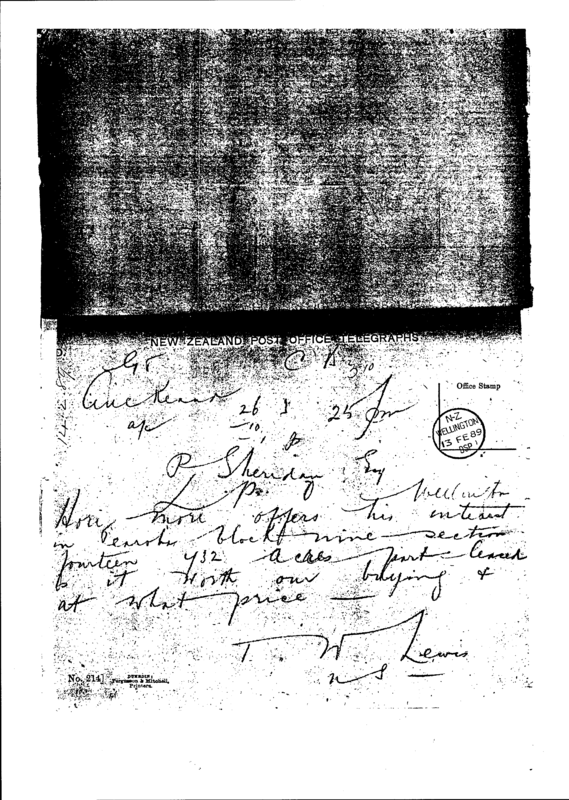 NEW ZEALAND POST OFFICE TELEGRAPHS.
Office Stamp
Auckland
26
25 pm
10
N-Z
WELLINGTON
13 FE 89
P Sheridan Esq
Wellington
Hone more offers his interest
in block nine section
fourteen 432 acres part leased
Is it worth our buying &
at what price —
T. W Lewis
No. 214]
DUNEDIN:
Fergusson & Mitchell,
Printers.